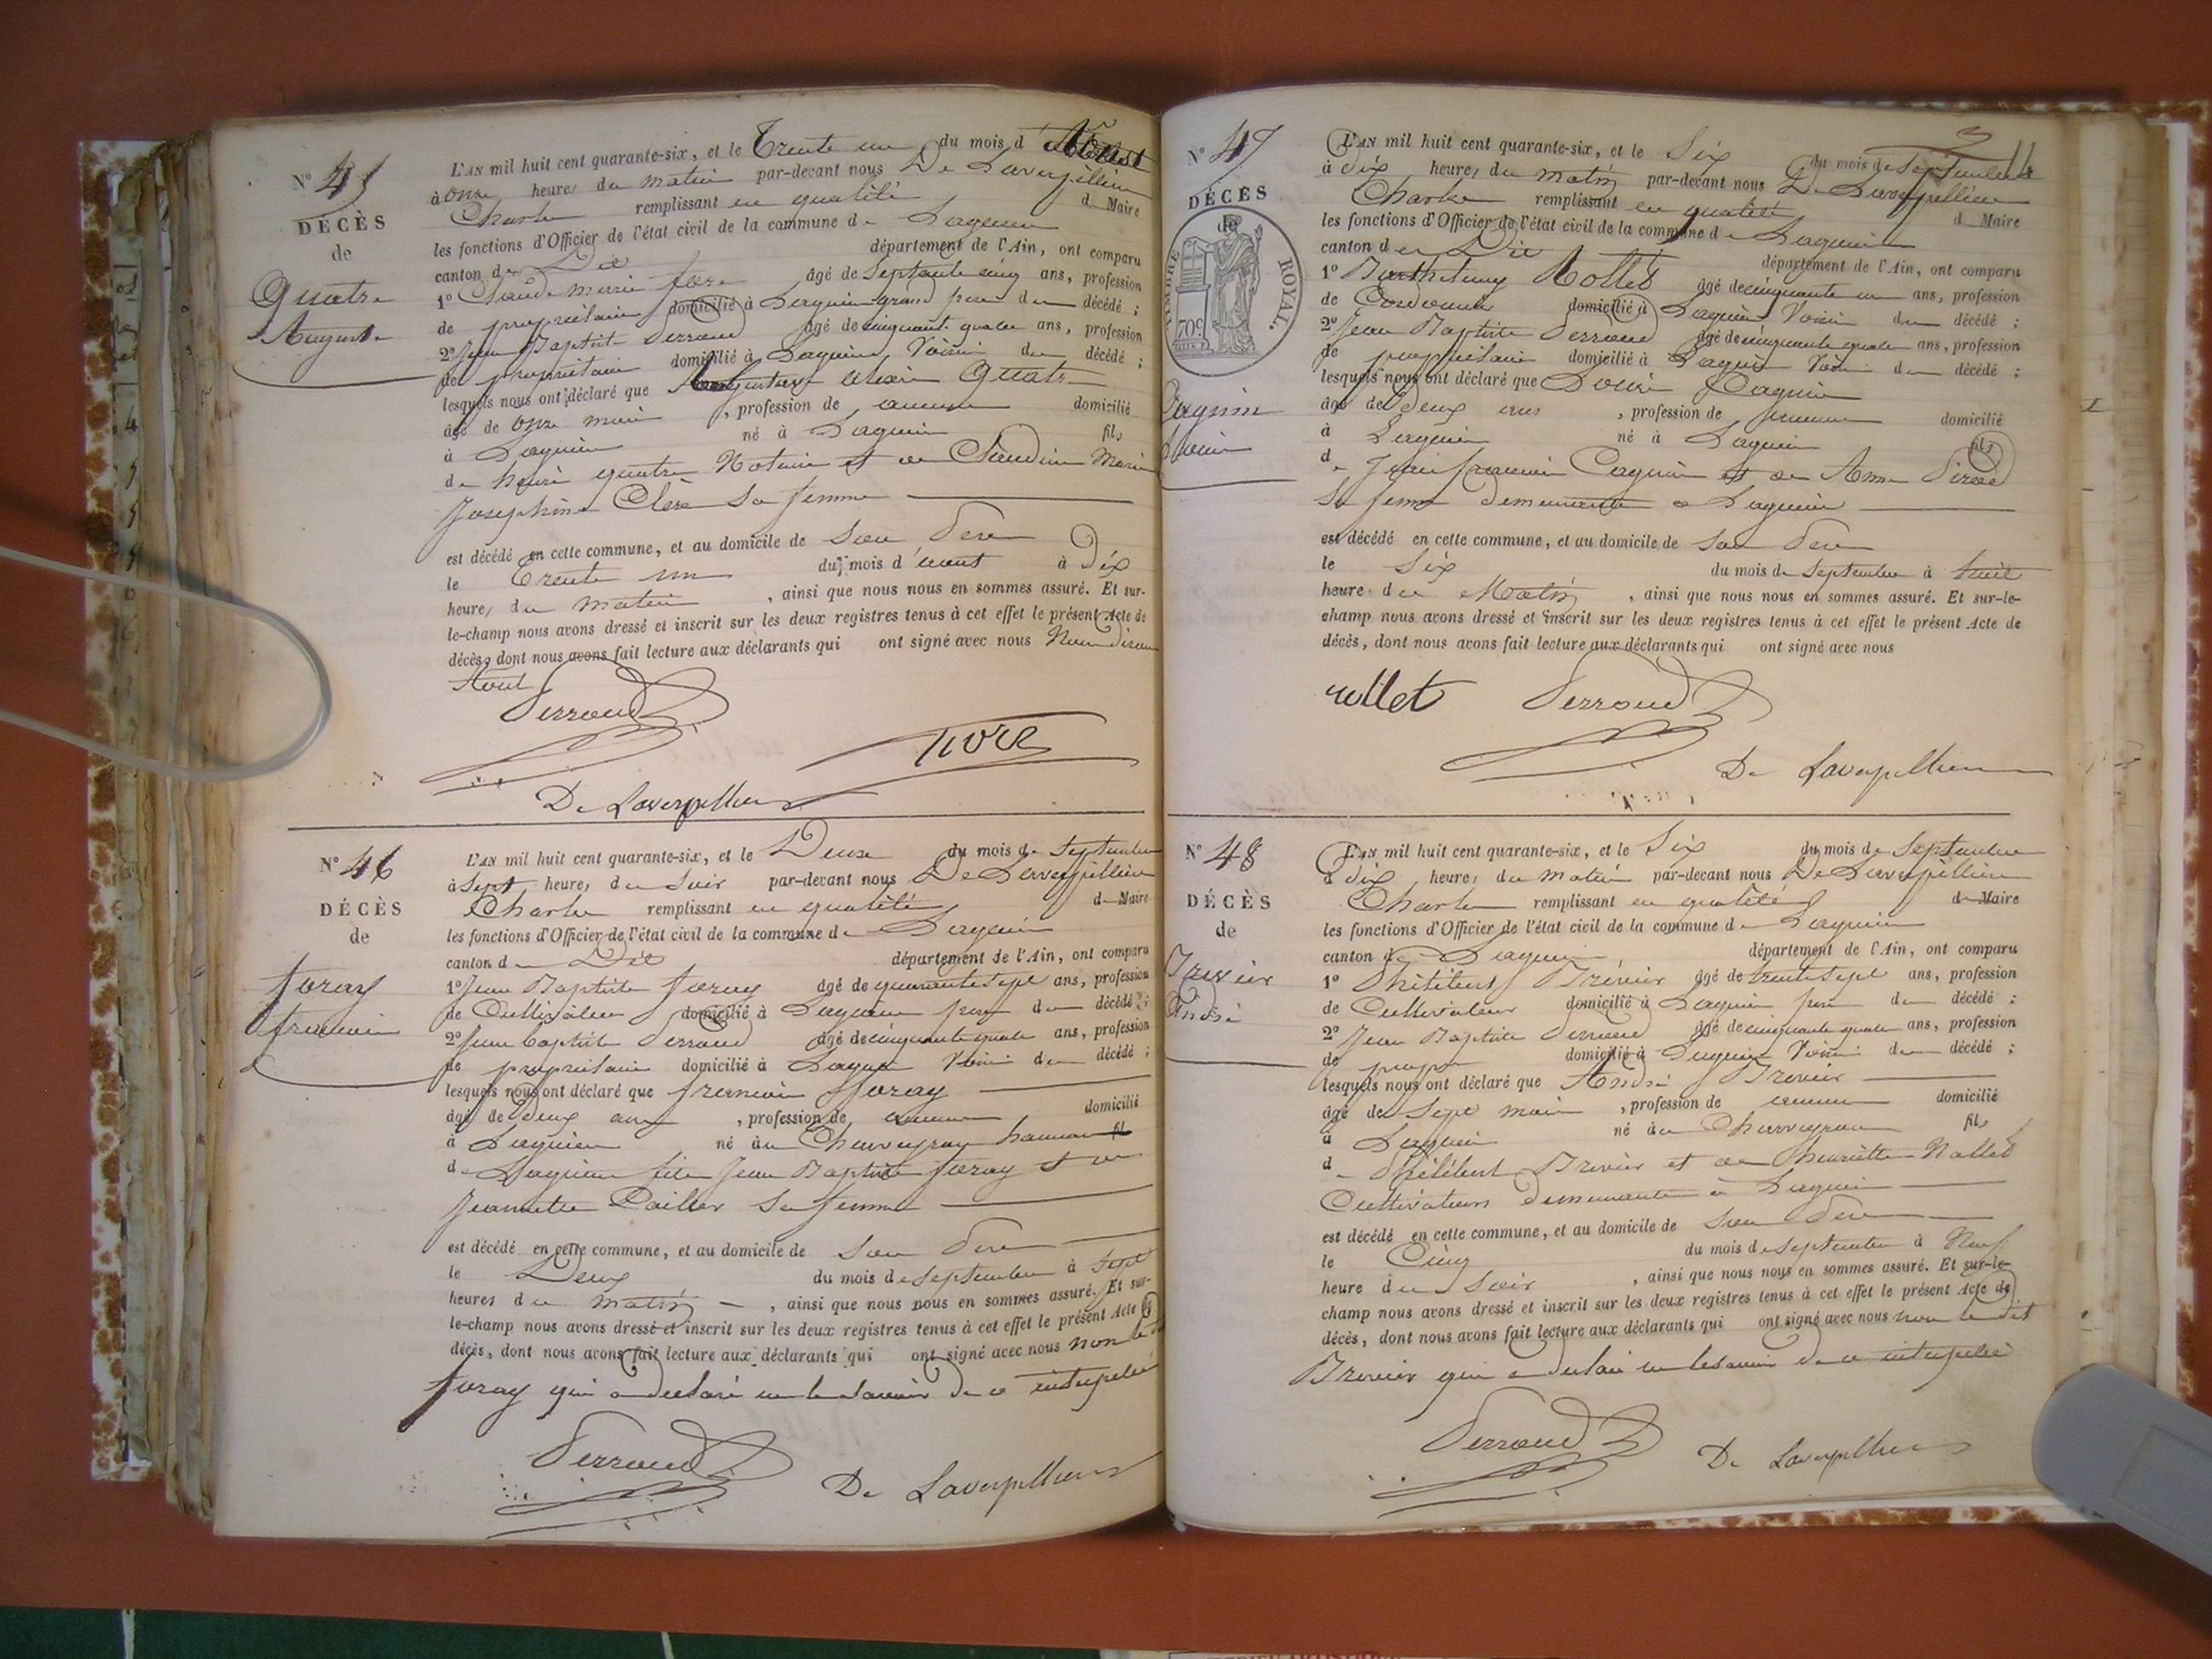 N° 45
DÉCÈS
de
Quatre
Auguste
L'AN mil huit cent quarante-six, et le Trente un du mois d'Aout
à onze heures du matin par-devant nous De Laverpillière
Charles remplissant en qualité de Maire
les fonctions d'Officier de l'état civil de la commune de Lagnieu
canton de Dit département de l'Ain, ont comparu
1° Claude marie âgé de Septante cinq ans, profession
de propriétaire domicilié à Lagnieu grand père du décédé ;
2° Jean Baptiste Perroud âgé de cinquante quatre ans, profession
de propriétaire domicilié à Lagnieu Voisin du décédé ;
lesquels nous ont déclaré que Quatre
âgé de onze mois , profession de aucune domicilié
à Lagnieu né à Lagnieu fils
de henri quatre Notaire et de Claudine Marie
Josephine Clere sa femme
est décédé en cette commune, et au domicile de Son Père
le Trente un du mois d'aout à Dix
heures du matin , ainsi que nous nous en sommes assuré. Et sur-
le-champ nous avons dressé et inscrit sur les deux registres tenus à cet effet le présent Acte de
décès, dont nous avons fait lecture aux déclarants qui ont signé avec nous Nous disons
Aout
Perroud
De Laverpillière
N° 46
DÉCÈS
de
foray
francois
L'AN mil huit cent quarante-six, et le Deux du mois de Septembre
à Sept heures du Soir par-devant nous De Laverpillière
Charles remplissant en qualité de Maire
les fonctions d'Officier de l'état civil de la commune de Lagnieu
canton de Dit département de l'Ain, ont comparu
1° Jean Baptiste foray âgé de quarante sept ans, profession
de Cultivateur domicilié à Lagnieu père du décédé ;
2° Jean Baptiste Perroud âgé de cinquante quatre ans, profession
de propriétaire domicilié à Lagnieu Voisin du décédé ;
lesquels nous ont déclaré que francois foray
âgé de Deux ans , profession de aucune domicilié
à Lagnieu né au Charveyron hameau fil
de Lagnieu fils Jean Baptiste foray et de
Jeannette Cailler Sa femme
est décédé en cette commune, et au domicile de Son Père
le Deux du mois de Septembre à Sept
heures du matin , ainsi que nous nous en sommes assuré. Et sur-
le-champ nous avons dressé et inscrit sur les deux registres tenus à cet effet le présent Acte de
décès, dont nous avons fait lecture aux déclarants qui ont signé avec nous non le dit
foray qui a declaré ne le savoir de ce interpellé
Perroud
De Laverpillière
N° 47
DÉCÈS
de
TIMBRE ROYAL.
70c
Cagnin
Louis
L'AN mil huit cent quarante-six, et le Six du mois de Septembre
à dix heures du matin par-devant nous De Laverpillière
Charles remplissant en qualité de Maire
les fonctions d'Officier de l'état civil de la commune de Lagnieu
canton de Dit département de l'Ain, ont comparu
1° Barthelemy Rollet âgé de cinquante un ans, profession
de Cordonnier domicilié à Lagnieu Voisin du décédé ;
2° Jean Baptiste Perroud âgé de cinquante quatre ans, profession
de propriétaire domicilié à Lagnieu Voisin du décédé ;
lesquels nous ont déclaré que Louis Cagnin
âgé de Deux ans , profession de domicilié
à Lagnieu né à Lagnieu fils
de Jean francois Cagnin et de Anne
Sa femme demeurants à Lagnieu
est décédé en cette commune, et au domicile de Son Père
le Six du mois de Septembre à huit
heure du Matin , ainsi que nous nous en sommes assuré. Et sur-le-
champ nous avons dressé et inscrit sur les deux registres tenus à cet effet le présent Acte de
décès, dont nous avons fait lecture aux déclarants qui ont signé avec nous
rollet Perroud
De Laverpillière
N° 48
DÉCÈS
de
Trevier
André
L'AN mil huit cent quarante-six, et le Six du mois de Septembre
à dix heures du matin par-devant nous De Laverpillière
Charles remplissant en qualité de Maire
les fonctions d'Officier de l'état civil de la commune de Lagnieu
canton de Lagnieu département de l'Ain, ont comparu
1° Philibert Trevier âgé de trente sept ans, profession
de Cultivateur domicilié à Lagnieu père du décédé ;
2° Jean Baptiste Perroud âgé de cinquante quatre ans, profession
de propre domicilié à Lagnieu Voisin du décédé ;
lesquels nous ont déclaré que André Trevier
âgé de Sept mois , profession de aucune domicilié
à Lagnieu né au Charveyron fils
de Philibert Trevier et de henriette Nallet
Cultivateurs demeurants à Lagnieu
est décédé en cette commune, et au domicile de Son Père
le Cinq du mois de Septembre à Neuf
heure du Soir , ainsi que nous nous en sommes assuré. Et sur-le-
champ nous avons dressé et inscrit sur les deux registres tenus à cet effet le présent Acte de
décès, dont nous avons fait lecture aux déclarants qui ont signé avec nous non le dit
Trevier qui a declaré ne le savoir de ce interpellé
Perroud
De Laverpillière